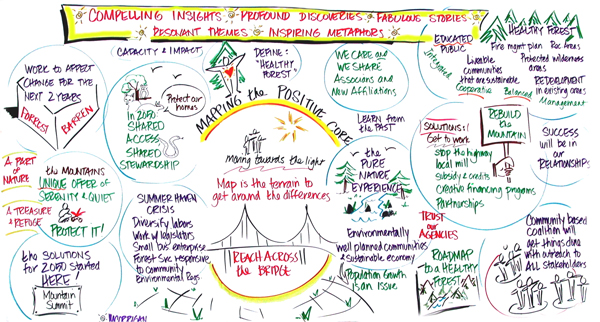 COMPELLING INSIGHTS PROFOUND DISCOVERIES FABULOUS STORIES
RESONANT THEMES INSPIRING METAPHORS
WORK TO AFFECT
CHANGE FOR THE
NEXT 2 YEARS
FORREST
BARREN
CAPACITY & IMPACT
Protect our
homes
In 2080
SHARED
ACCESS
SHARED
STEWARDSHIP
DEFINE:
"HEALTHY
FOREST"
WE CARE and
WE SHARE
Associans and
New Affiliations
EDUCATED
PUBLIC
Integrated
Livable
Communities
that are sustainable
Cooperative
Balanced
HEALTHY FOREST
Fire mgmt plan Rec Areas
Protected wilderness
areas
REDEVELOPMENT
in existing areas
Management
MAPPING the POSITIVE CORE
Moving towards the light
Map is the terrain to
get around the differences
REACH ACROSS
the BRIDGE
LEARN from
the PAST
the
PURE
NATURE
EXPERIENCE
SOLUTIONS:
Get to work
Stop the highway
local mill
subsidy & credits
Creative financing programs
Partnerships
REBUILD
the
MOUNTAIN
SUCCESS
will be in
our
RELATIONSHIPS
A PART
of
NATURE
A TREASURE
& REFUGE
the MOUNTAINS
UNIQUE OFFER of
SERENITY & QUIET
PROTECT IT!
SUMMER HAVEN
CRISIS
Diversify labors
Work w/ legislators
Small bus enterprise
Forest Svc responsive
to community
Environmental Regs
the SOLUTIONS
for 2080 started
HERE
Mountain
Summit
Environmentally
well planned communities
& sustainable economy
Population Growth
is an issue
TRUST
our
AGENCIES
ROADMAP
to a HEALTHY
FOREST
Community based
coalition will
get things done
with outreach to
ALL stakeholders